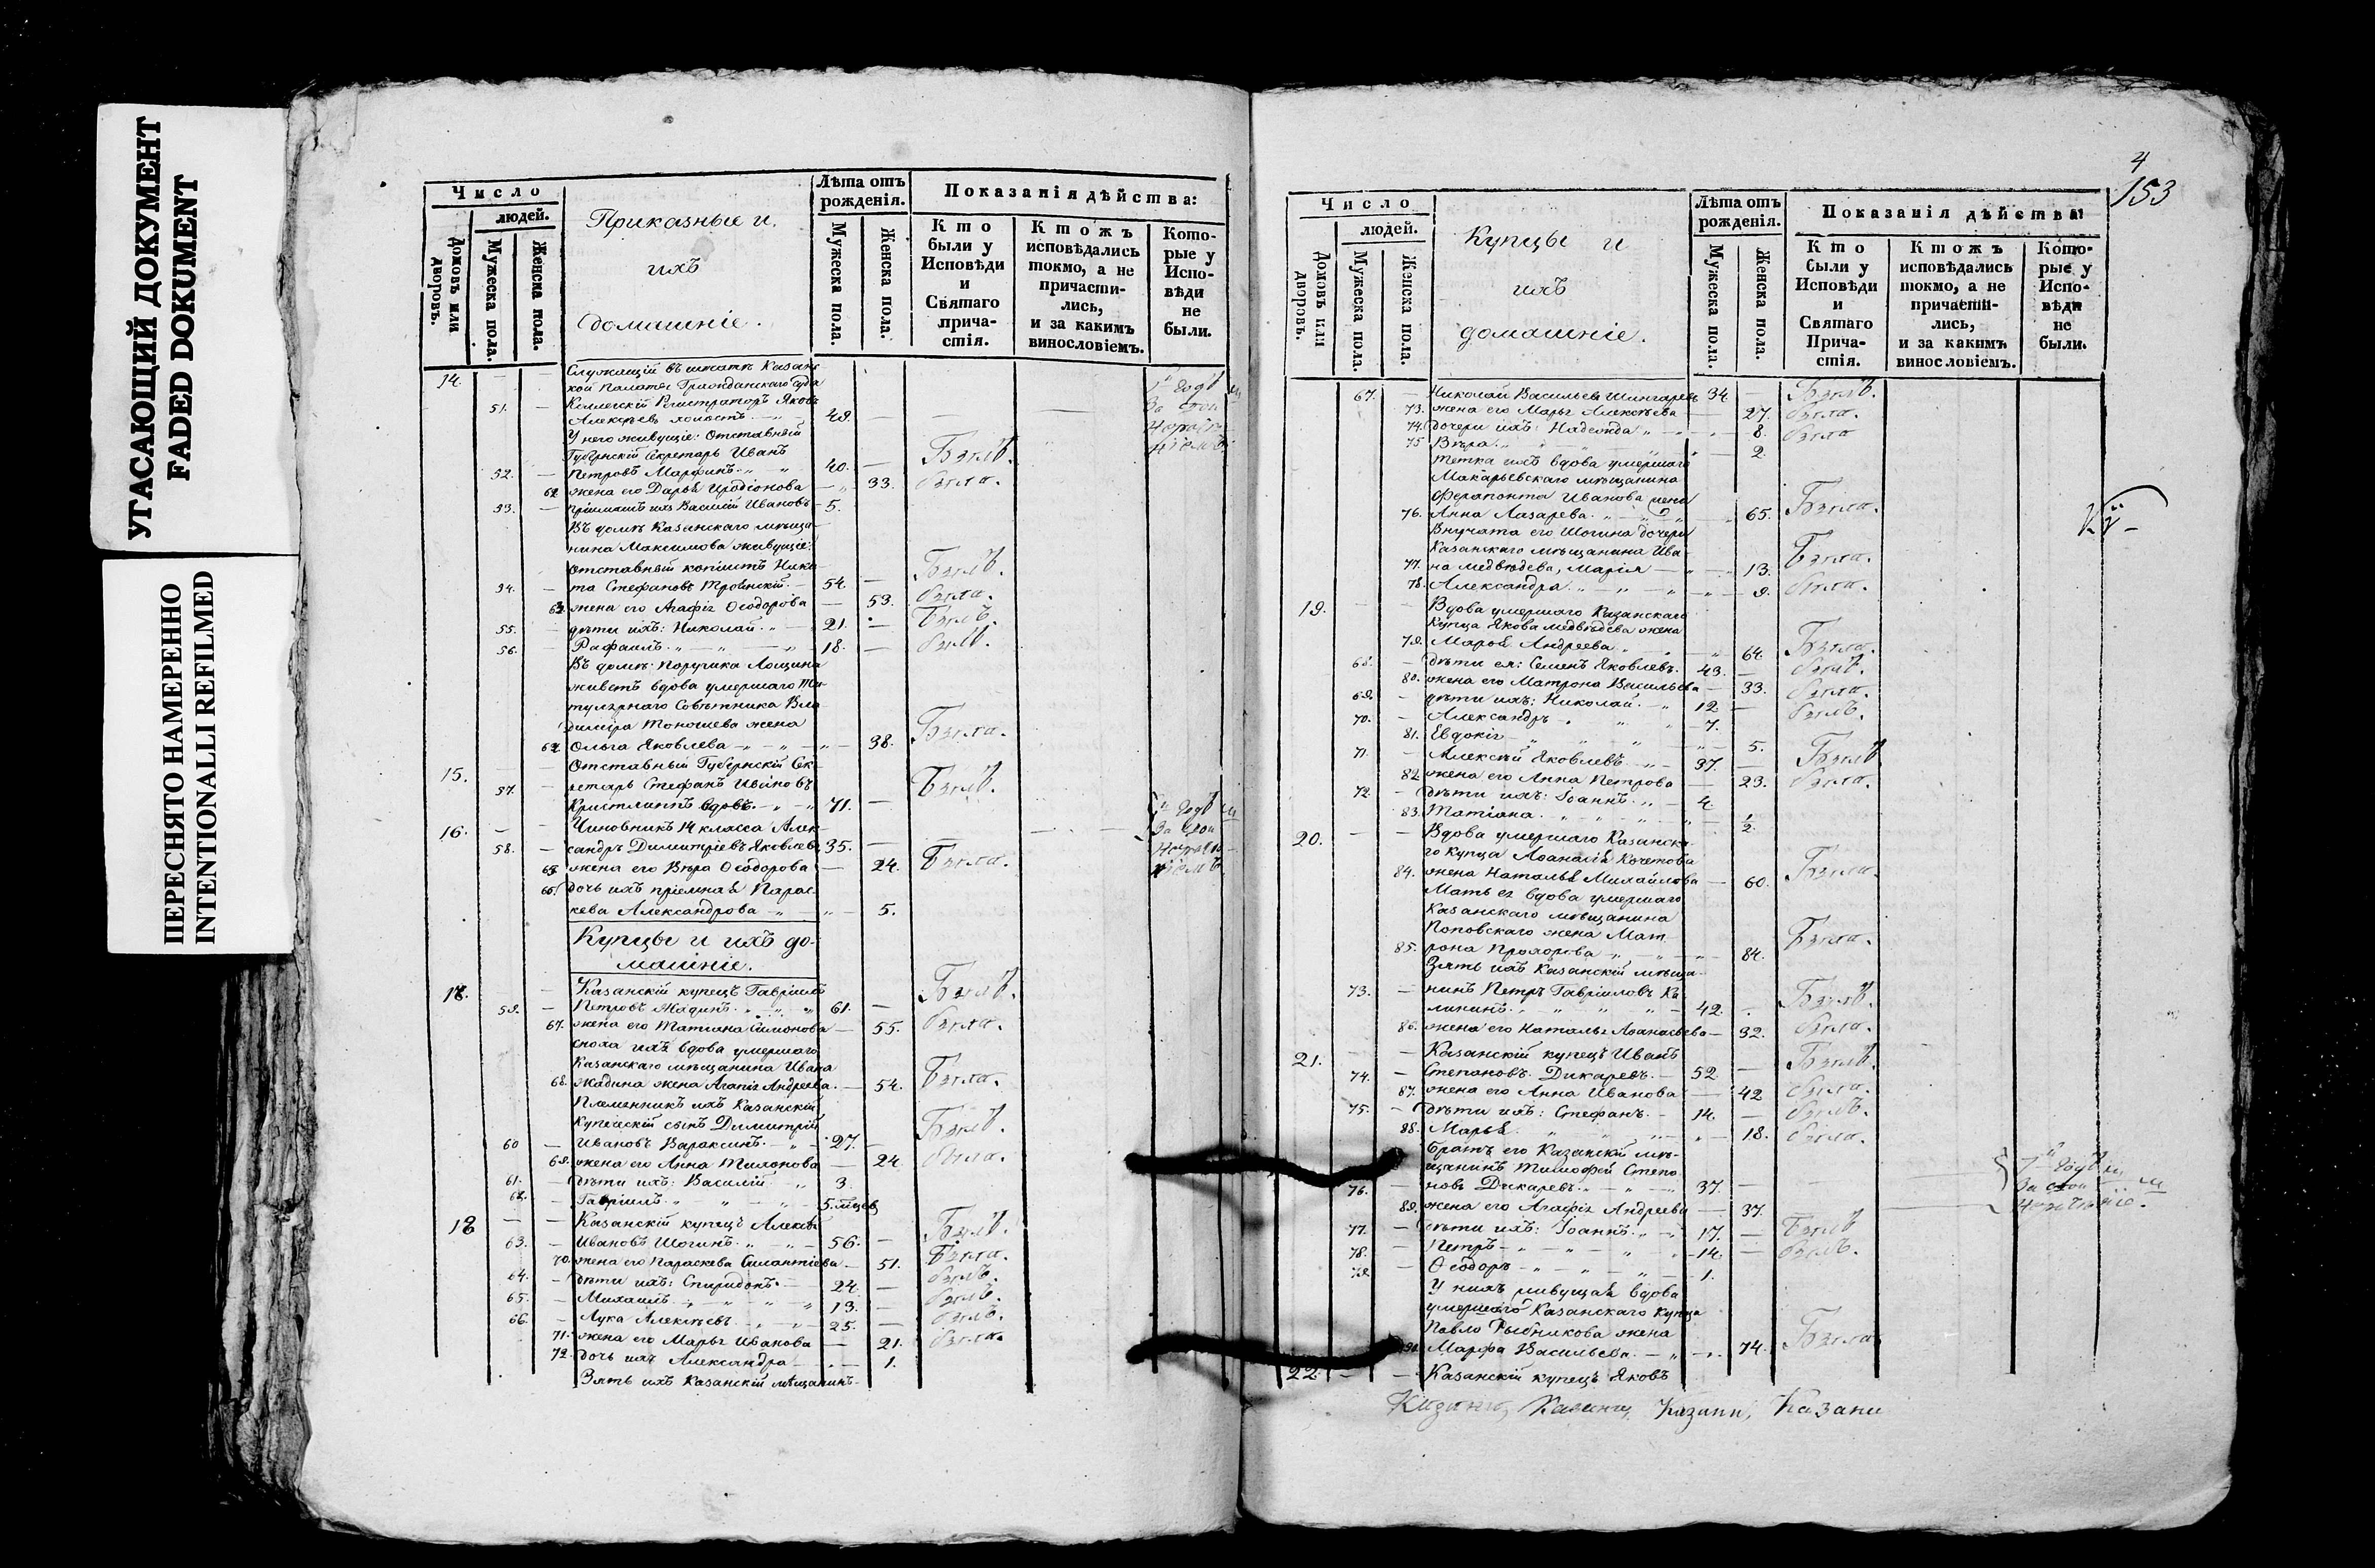 УГАСАЮЩИЙ ДОКУМЕНТ
FADED DOKUMENT
ПЕРЕСНЯТО НАМЕРЕННО
INTENTIONALLI REFILMED
Число
людей.
Домовъ или дворовъ.
Мужеска пола.
Женска пола.
Приказные и
ихъ
домашніе.
Лѣта отъ рожденія.
Мужеска пола.
Женска пола.
Показанія дѣйства:
Кто были у Исповѣди и Святаго прича-стія.
Ктожъ исповѣдались токмо, а не причасти-лись, и за какимъ винословіемъ.
Кото-рые у Испо-вѣди не были.
14. — — Служащій въ штатѣ Казанс
кой Палаты Гражданскаго Суда
51. — Коллежскій Регистраторъ Яковъ
Алексѣевъ холостъ 49. —
У него живущіе: Отставный
Губернскій Секретарь Иванъ
52. — Петровъ 40. — Былъ.
жена его Дарья Иродіонова 33. была.
53. — пріимышъ ихъ Василій Ивановъ 5.
Въ домѣ Казанскаго мѣща
нина Максимова живущіе:
Отставный копіистъ Ники
54. — та Стефановъ Троинскій 54. — Былъ.
жена его Агафія Ѳеодорова 53. была.
55. — дѣти ихъ: Николай 21. — Былъ.
56. — Рафаилъ 18. — былъ.
Въ домѣ Поручика Лощина
живетъ вдова умершаго Ти
тулярнаго Совѣтника Вла
диміра жена
Ольга Яковлева 38. Была.
15. Отставный Губернскій Сек
57. — ретарь Стефанъ Ивановъ Былъ.
вдовъ 71. —
16. — — Чиновникъ 14 класса Алек
58. — сандръ Димитріевъ Яковлевъ 35. —
жена его Вѣра Ѳеодорова 24. Была.
дочь ихъ пріемная Парас
кева Александрова 5.
Купцы и ихъ до
машніе.
Казанскій купецъ Гавріилъ Былъ.
59. — Петровъ Жадинъ 61. —
67. жена его Татіана Симонова 55. была.
сноха ихъ вдова умершаго
Казанскаго мѣщанина Ивана
68. Жадина жена Агапія Андреева 54. Была.
Племянникъ ихъ Казанскій
Купеческій сынъ Димитрій Былъ.
60 — Ивановъ Вараксинъ 27. —
69. жена его Анна 24 была.
61. — дѣти ихъ: Василій 3.
62. — Гавріилъ 5. мѣсяц
18 — — Казанскій купецъ Алексѣй Былъ.
63. — Ивановъ Шогинъ 56. —
70. жена его Параскева Силантіева 51. Была.
64. — дѣти ихъ: Спиридонъ 24. — былъ.
65. — Михаилъ 13. — былъ.
66. — Лука Алексѣевъ 25. — былъ.
71. жена его Марья Иванова 21. была.
72. дочь ихъ Александра 1.
Зять ихъ Казанскій мѣщанинъ
4
153
Число
людей.
Домовъ или дворовъ.
Мужеска пола.
Женска пола.
Купцы и
ихъ
домашніе.
Лѣта отъ рожденія.
Мужеска пола.
Женска пола.
Показанія дѣйства:
Кто были у Исповѣди и Святаго Прича-стія.
Ктожъ исповѣдались токмо, а не причасти-лись, и за какимъ винословіемъ.
Кото-рые у Испо-вѣди не были.
67. — Николай Васильевъ 34. Былъ.
73. жена его Марья Алексѣева 27. была.
74. дочери ихъ: Надежда 8. была
75 Вѣра 2.
Тетка ихъ вдова умершаго
Макарьевскаго мѣщанина
Ферапонта Иванова жена
76. Анна Лазарева 65. Была.
Внучата его Шогина дочери
Казанскаго мѣщанина Ива
77. на Медвѣдева, Марія 13. Была.
78. Александра 9. была.
19. — — Вдова умершаго Казанскаго
Купца Якова Медвѣдева жена
79. Марья Андреева 64. Была.
68. — дѣти ея: Семенъ Яковлевъ 43. — былъ.
80. жена его Матрона Васильева 33. была.
69. — дѣти ихъ: Николай 12 — былъ.
70. — Александръ 7.
81. Евдокія 5.
71. — Алексѣй Яковлевъ 37. — Былъ
82 жена его Анна Петрова 23. была.
72. — дѣти ихъ: Іоаннъ 4.
83. Татіана ½.
20. — — Вдова умершаго Казанска
го купца Аѳанасія Кочетова
84. жена Наталья Михайлова 60. Была.
Мать ея вдова умершаго
Казанскаго мѣщанина
Поповскаго жена Мат
85. рона Прохорова 84. Была.
Зять ихъ Казанскій мѣща
73. — нинъ Петръ Гавріиловъ Ка Былъ.
лининъ 42 —
86. жена его Наталья Аѳанасьева 32. была.
21. — — Казанскій купецъ Иванъ Былъ.
74. — Степановъ Дикаревъ 52 —
87. жена его Анна Иванова 42 была.
75. — дѣти ихъ: Стефанъ 14. — былъ.
88. Марья 18. была.
Братъ его Казанскій мѣ
щанинъ Тимофей Степа
76. — новъ Дикаревъ 37. —
89. жена его Агафія Андреева 37.
77. — дѣти ихъ: Іоаннъ 17. — Былъ
78. — Петръ 14. — былъ.
79. — Ѳеодоръ 1.
У нихъ живущая вдова
умершаго Казанскаго Купца
Павла Рыбникова жена
90. Марфа Васильева 74. Была
22. — — Казанскій купецъ Яковъ
Казани